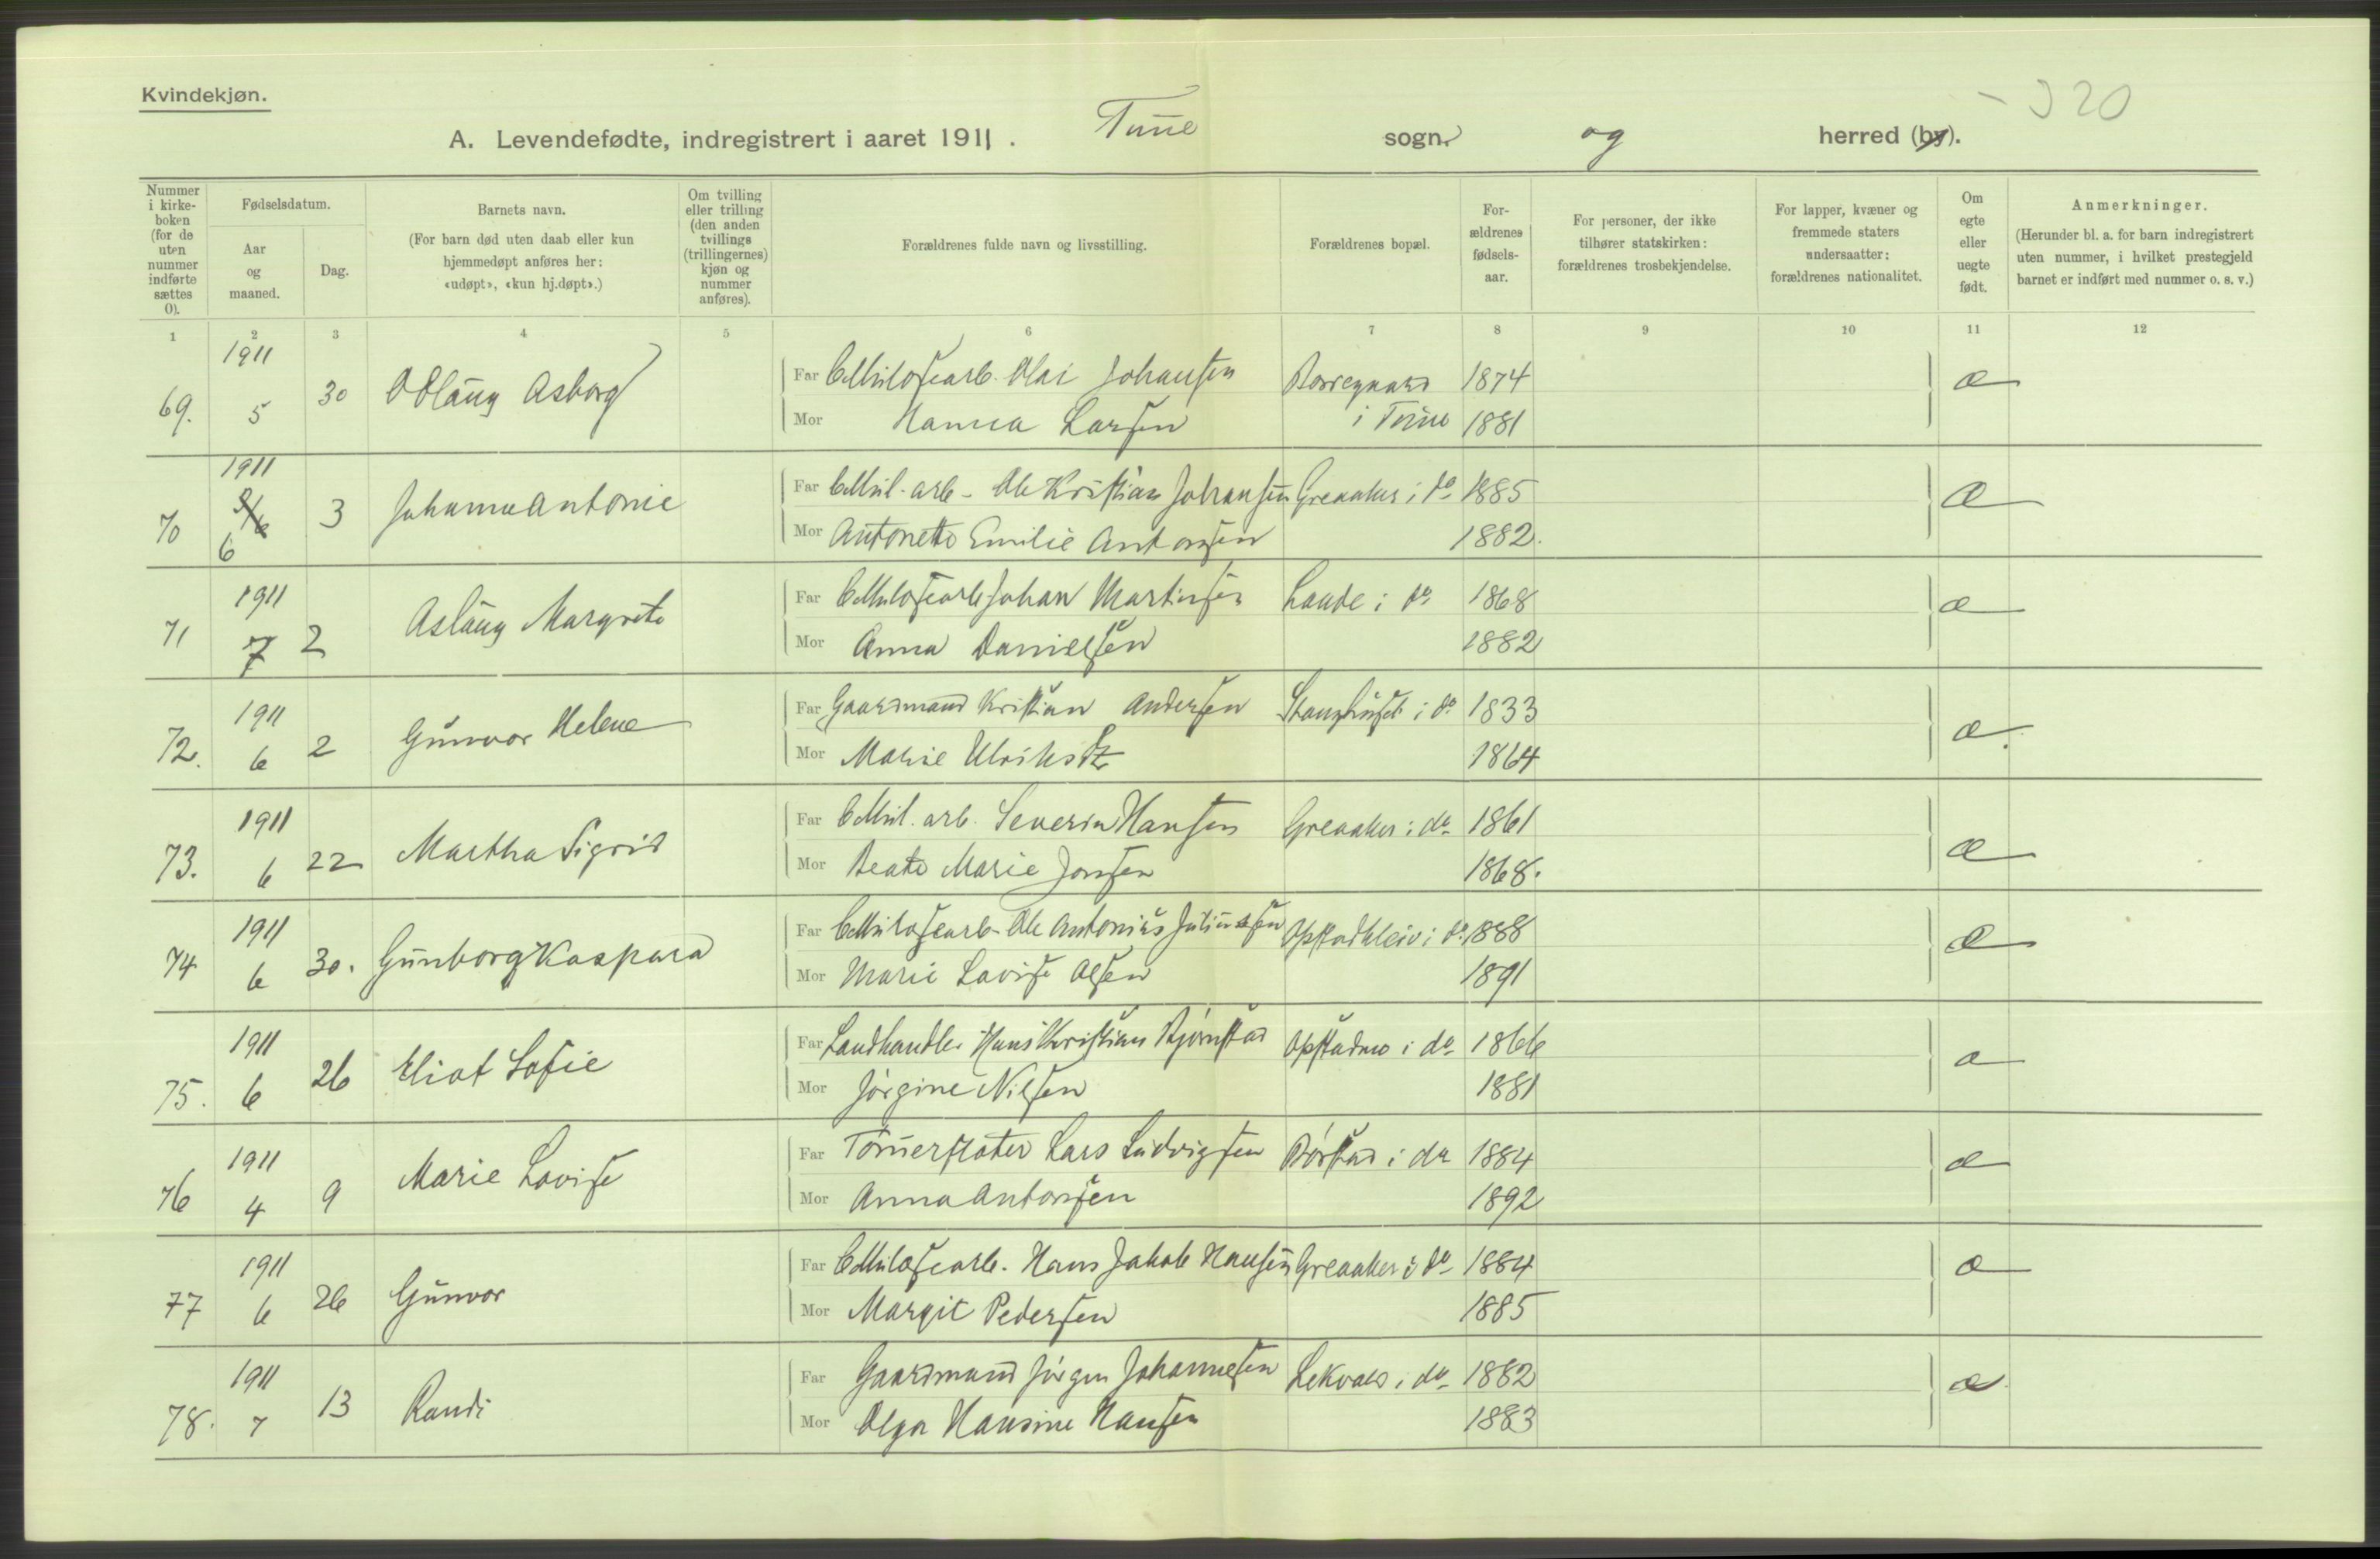 Kvindekjøn.
- 320
A. Levendefødte, indregistrert i aaret 1911. Tune sogn og herred (by).
Nummer i kirke-boken (for de uten nummer indførte sættes 0).
Fødselsdatum.
Aar og maaned.
Dag.
Barnets navn.
(For barn død uten daab eller kun hjemmedøpt anføres her: «udøpt», «kun hj.døpt».)
Om tvilling eller trilling (den anden tvillings (trillingernes) kjøn og nummer anføres).
Forældrenes fulde navn og livsstilling.
Forældrenes bopæl.
For-ældrenes fødsels-aar.
For personer, der ikke tilhører statskirken: forældrenes trosbekjendelse.
For lapper, kvæner og fremmede staters undersaatter: forældrenes nationalitet.
Om egte eller uegte født.
Anmerkninger.
(Herunder bl. a. for barn indregistrert uten nummer, i hvilket prestegjeld barnet er indført med nummer o. s. v.)
1 2 3 4 5 6 7 8 9 10 11 12
69. 1911 5 30 Oddlaug Asborg Far Cellulosearb. Olai Johansen Borregaard 1874 æ
Mor Hanna Larsen i Tune 1881
70 1911 6 3 Johanne Antonie Far Cellul. arb - Ole Kristian Johansen Greaaker i do 1885 æ
Mor Antonette Emilie Antonsen 1882.
71 1911 7 2 Aslaug Margrete Far Cellulosearb Johan Martinsen Lande i do 1868 æ
Mor Anna Danielsen 1882
72. 1911 6 2 Gunvor Helene Far Gaardmand Kristian Andersen i do 1833 æ.
Mor Marie Ulriksdtr 1864
73. 1911 6 22 Martha Sigrid Far Cellul. arb. Severin Hansen Greaaker i do 1861 æ
Mor Beate Marie Jonsen 1868.
74 1911 6 30. Gunborg Kaspara Far Cellulosearb - Ole Antonius Juliussen Opstadkleiv i do. 1888 æ
Mor Marie Lovise Olsen 1891
75. 1911 6 26 Eliot Sofie Far Landhandler Hans Kristian Bjørnstad Opstadmo i do 1866 æ
Mor Jørgine Nilsen 1881
76 1911 4 9 Marie Lovise Far Tømerfløter Lars Ludvigsen Børstad i do 1884 æ
Mor Anna Antonsen 1892
77 1911 6 26 Gunvor Far Cellulosearb. Hans Jakob Hansen Greaaker i do 1884 æ
Mor Margit Pedersen 1885
78. 1911 7 13 Randi Far Gaardmand Jørgen Johannesen Lekvold i do 1882 æ.
Mor Olga Hansine Hansen 1883